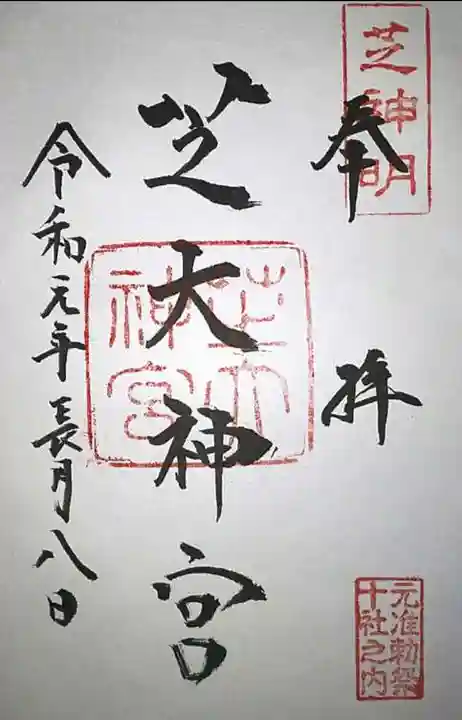 芝神明
奉拝
元准勅祭
十社之内
芝大神宮
芝大
神宮
令和元年長月八日